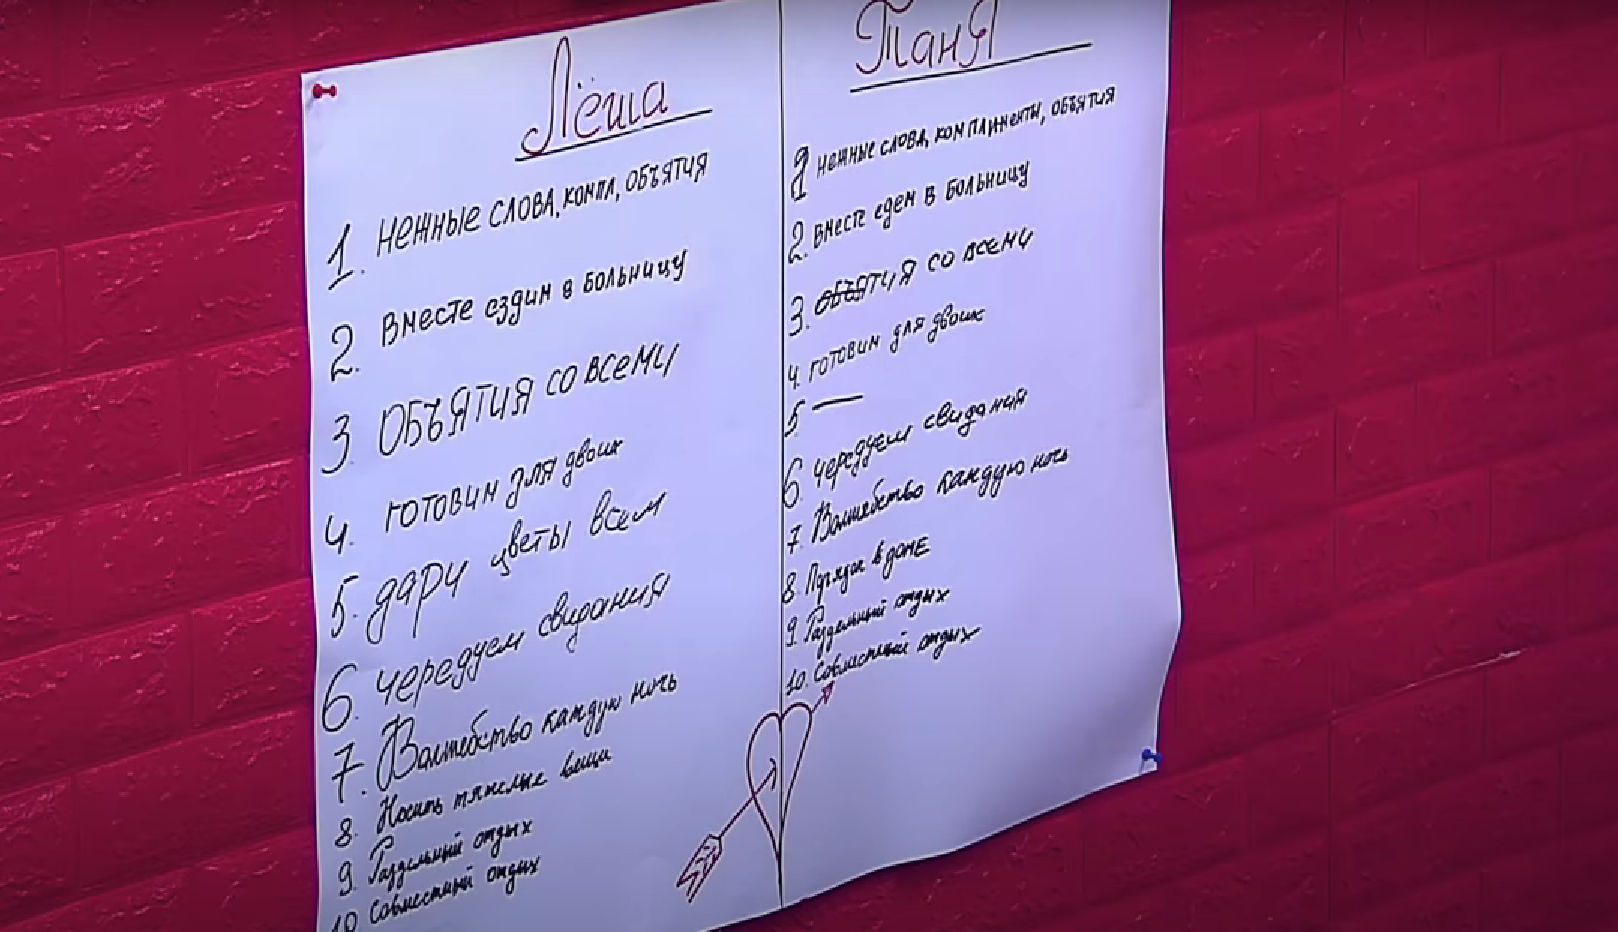 Лёша
1. нежные слова, компл, объятия
2. вместе ездим в больницу
3. объятия со всеми
4. готовим для двоих
5. дари цветы всем
6. чередуем свидания
7. Волшебство каждую ночь
8. Носить тяжелые вещи
9. Раздельный отдых
10 Совместный отдых
Таня
1 нежные слова, комплименты, объятия
2. вместе едем в больницу
3. объятия со всеми
4. готовим для двоих
5 —
6 чередуем свидания
7. Волшебство каждую ночь
8. Порядок в доме
9. Раздельный отдых
10. Совместный отдых